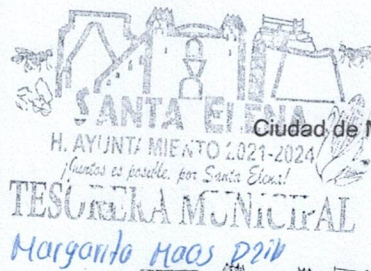 SANTA ELENA
Ciudad de
H. AYUNTAMIENTO 2021-2024
¡Juntos es posible, por Santa Elena!
TESORERA MUNICIPAL
Margarita Haas Dzib